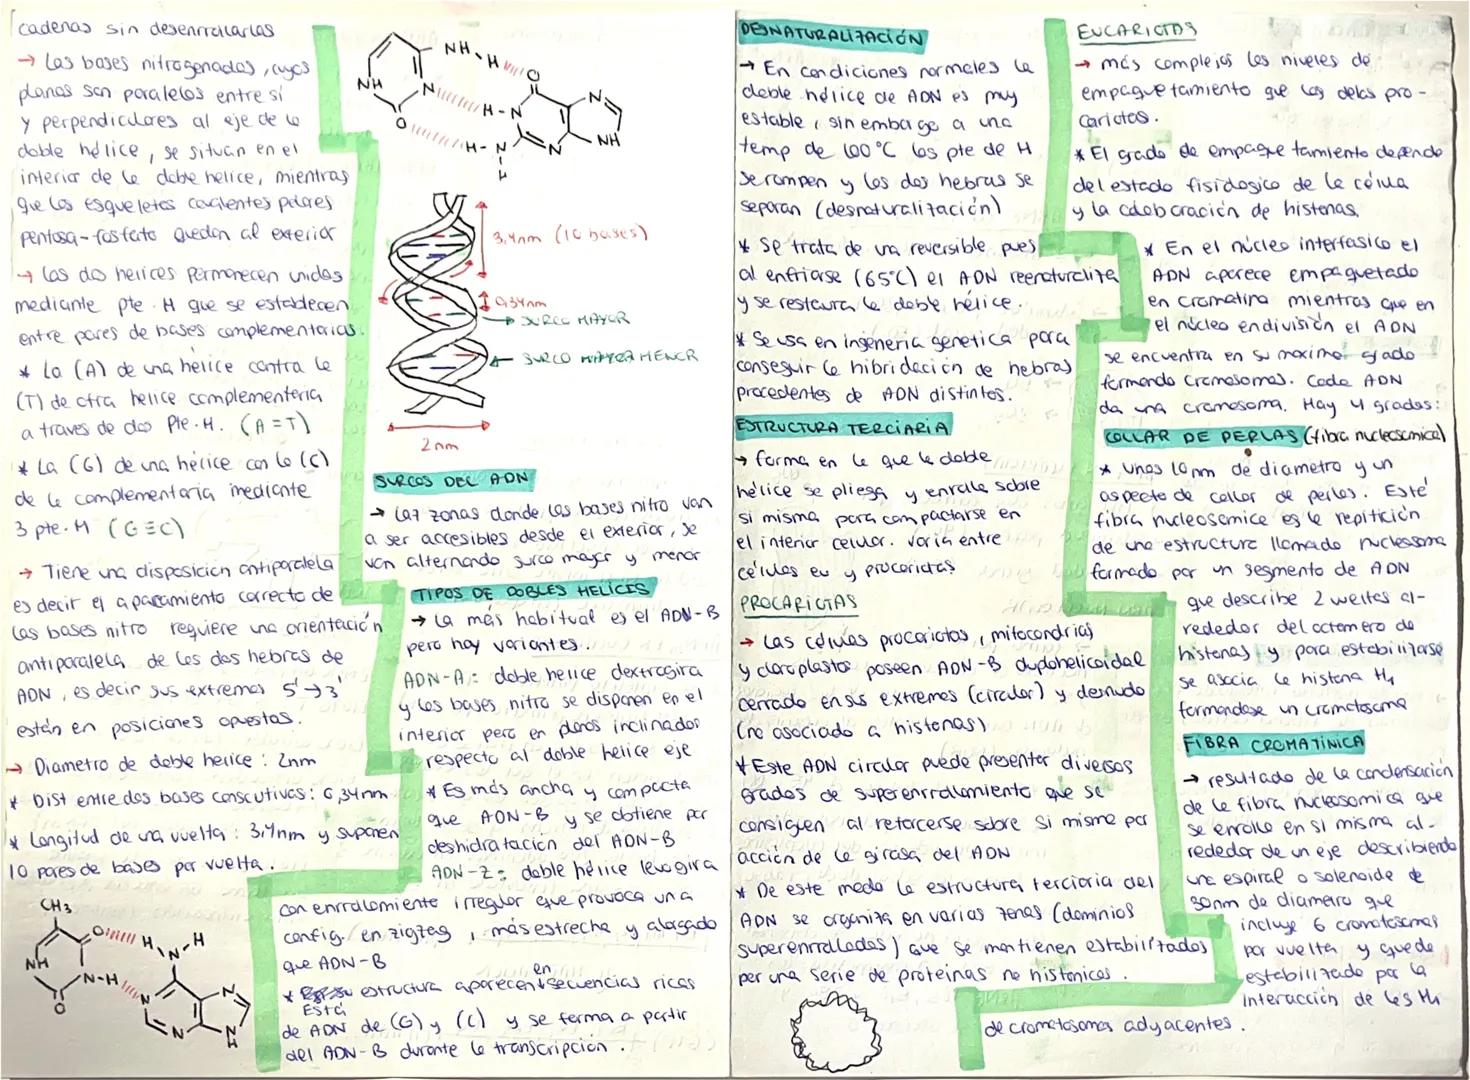 cadenas sin desenrrollarlas
→ Las bases nitrogenadas, cuyos
planos son paralelos entre sí
y perpendiculares al eje de la
doble hélice, se sitúan en el
interior de la doble helice, mientras
que los esqueletos covalentes polares
pentosa-fosfato quedan al exterior
→ Las dos helices permanecen unidas
mediante pte. H que se establecen
entre pares de bases complementarias.
* La (A) de una hélice contra la
(T) de otra helice complementeria
a traves de dos Pte. H. (A=T)
* La (G) de una hélice con la (C)
de la complementaria mediante
3 pte. H (G≡C)
→ Tiene una disposición antiparalela
es decir el aparamiento correcto de
las bases nitro requiere una orientación
antiparalela de las dos hebras de
ADN, es decir sus extremos 5'→3'
están en posiciones opuestas.
→ Diametro de doble helice: 2nm
* Dist entre dos bases conscutivas: 0,34nm
* Longitud de una vuelta: 3,4nm y suponen
10 pares de bases por vuelta.
CH3
O H H
N
NH N-H N
O N N
N
H
NH-H O
NH N H-N N
O H-N N NH
H
3,4nm (10 bases)
0,34nm
SURCO MAYOR
SURCO MENOR
2nm
SURCOS DEL ADN
→ Las zonas donde las bases nitro van
a ser accesibles desde el exterior, se
van alternando surco mayor y menor
TIPOS DE DOBLES HELICES
→ La más habitual es el ADN-B
pero hay variantes.
ADN-A: doble helice dextrogira
y las bases nitro se disponen en el
interior pero en planos inclinados
respecto al doble helice eje
* Es más ancha y compacta
que ADN-B y se obtiene por
deshidratación del ADN-B
ADN-Z: doble hélice levogira
con enrrollamiento irregular que provoca una
config. en zigzag, más estrecha y alargada
que ADN-B
* Esta estructura aparecen en secuencias ricas
de ADN de (G) y (C) y se forma a partir
del ADN-B durante la transcripción.
DESNATURALIZACIÓN
→ En condiciones normales la
doble hélice de ADN es muy
estable, sin embargo a una
temp de 100°C los pte de H
se rompen y las dos hebras se
separan (desnaturalización)
* Se trata de va reversible pues
al enfriarse (65°C) el ADN reenaturaliza
y se restaura la doble hélice.
* Se usa en ingenería genetica para
conseguir la hibridación de hebras
procedentes de ADN distintos.
ESTRUCTURA TERCIARIA
→ forma en la que la doble
hélice se pliega y enrolla sobre
si misma para compactarse en
el interior celular. Varía entre
células eu y procariotas
PROCARIOTAS
→ Las células procariotas, mitocondrias
y cloroplastos poseen ADN-B duplohelicoidal
cerrado en sus extremos (circular) y desnudo
(no asociado a histonas)
* Este ADN circular puede presenter diversos
grados de superenrrollamiento que se
consiguen al retorcerse sobre si mismo por
acción de la girasa del ADN
* De este modo la estructura terciaria del
ADN se organiza en varias zonas (dominios
superenrrollados) que se mantienen estabilitados
por una serie de proteínas no histonicas.
EUCARIOTAS
→ más complejos los niveles de
empaquetamiento que los delas pro-
cariotas.
* El grado de empaquetamiento depende
del estado fisiologico de la célula
y la colaboración de histonas.
* En el núcleo interfasico el
ADN aparece empaquetado
en cromatina mientras que en
el núcleo en división el ADN
se encuentra en su maximo grado
formando cromosomas. Cada ADN
da una cromosoma. Hay 4 grados:
COLLAR DE PERLAS (fibra nucleosomica)
* Unos 10nm de diametro y un
aspecto de collar de perlas. Esté
fibra nucleosomica es la repitición
de una estructura llamada nucleosoma
formado por un segmento de ADN
que describe 2 vueltas al-
rededor del octamero de
histonas y para estabilizarse
se asocia la histona H1
formandose un cromatosoma
FIBRA CROMATÍNICA
→ resultado de la condensación
de la fibra nucleosomica que
se enrolla en si misma al-
rededor de un eje describiendo
una espiral o solenoide de
30nm de diametro que
incluye 6 cromatosomas
por vuelta y quede
estabilizado por la
interacción de las H1
de cromatosomas adyacentes.